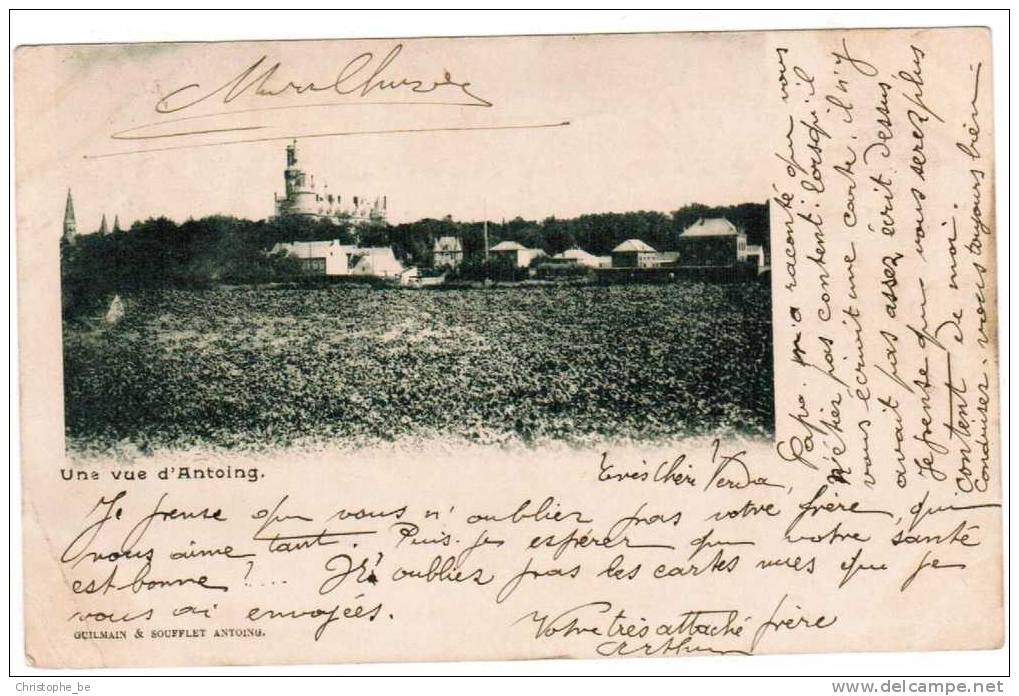 Une vue d'Antoing.
Très Chéri
Je pense que vous n'oubliez pas votre frère, qui
vous aime tant. Puis-je espérer que votre santé
est-bonne?.... N'oubliez pas les cartes vues que je
vous ai envoyées.
GUILMAIN & SOUFFLET ANTOING.
Votre très attaché frère
Arthur
Papa m'a raconté que vous
n'étiez pas content lorsqu'il
vous écrivait une carte, il n'y
avait pas assez écrit dessus
Je pense que vous serez plus
content de moi.
Conduisez-vous toujours bien
Christophe_be
www.delcampe.net